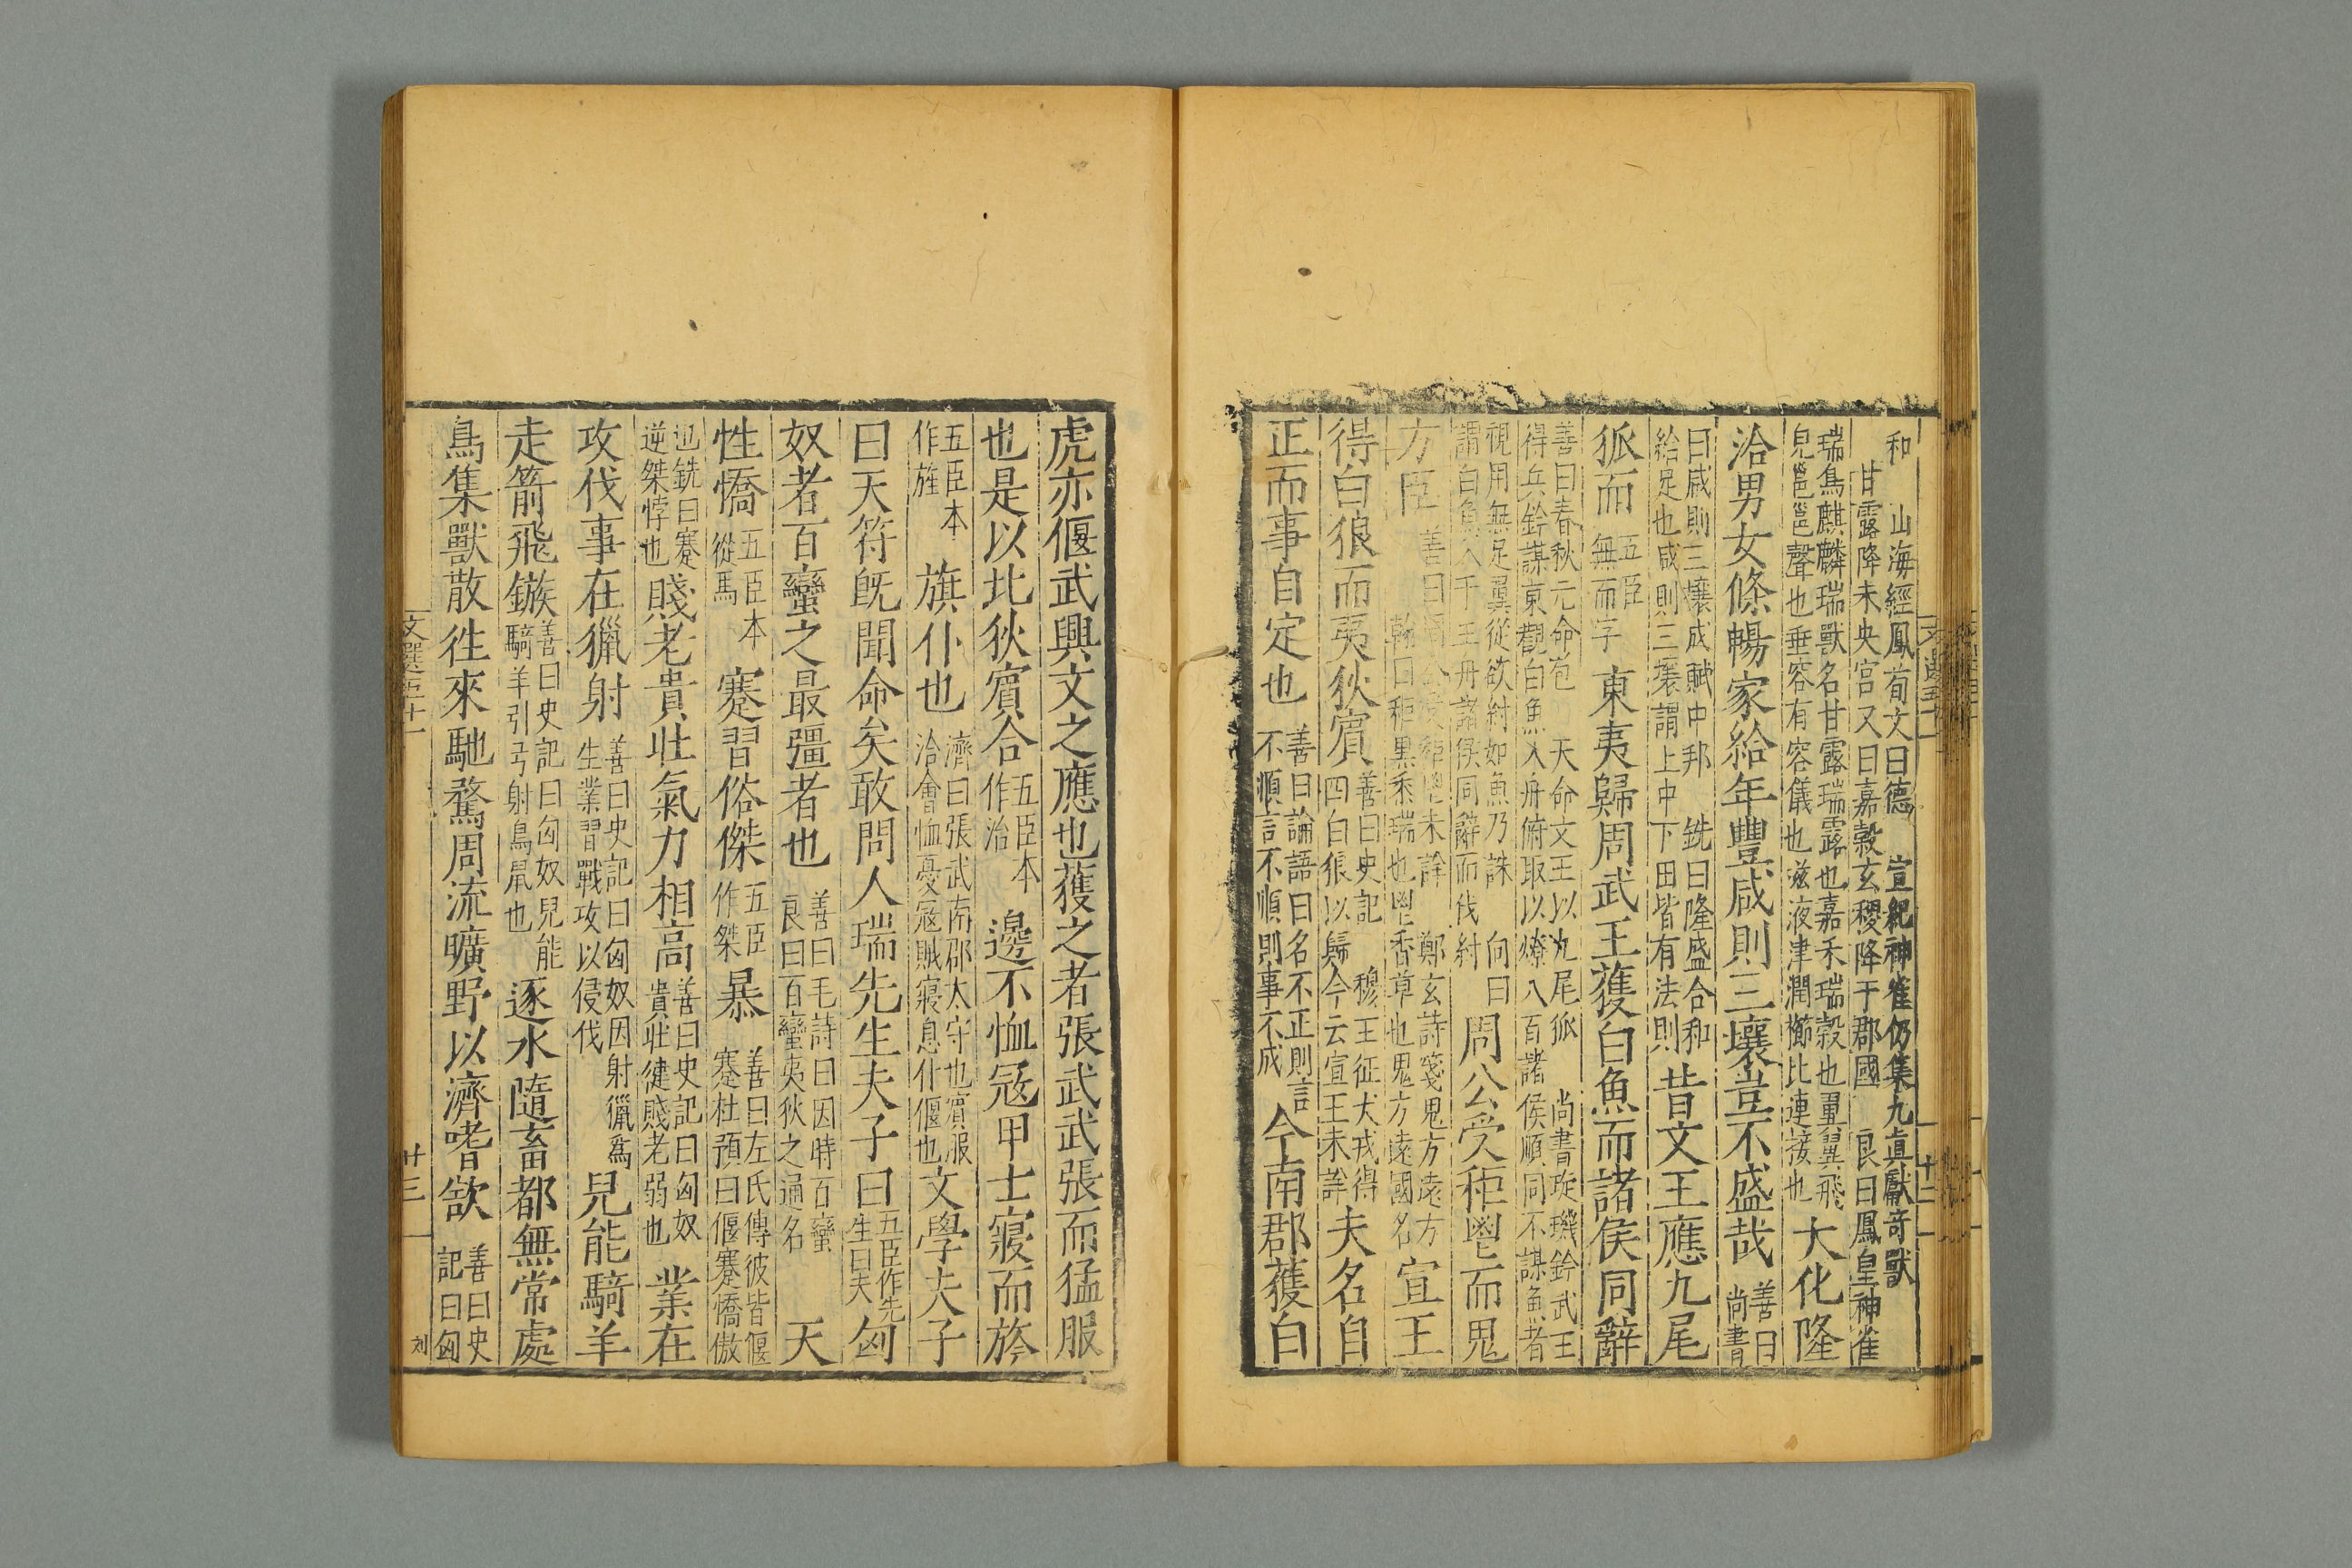 和　山海經鳳首文曰德　宣紀神雀仍集九真獻奇獸
甘露降未央宮又曰嘉穀玄稷降于郡國　良曰鳳皇神雀
瑞鳥麒麟瑞獸名甘露瑞露也嘉禾瑞穀也翬翼飛
皃邕邕聲也垂容有容儀也滋液津潤櫛比連接也
大化隆
洽男女條暢家給年豐咸則三壤豈不盛哉
善曰尚書
曰咸則三壤成賦中邦　銑曰隆盛合和
給足也咸則三壤謂上中下田皆有法則
昔文王應九尾
狐而
五臣
無而字
東夷歸周武王獲白魚而諸侯同辭
善曰春秋元命苞　天命文王以九尾狐　尚書琁璣鈐武王
得兵鈐謀東觀白魚入舟俯取以燎八百諸侯順同不謀魚者
視用無足翼從欲紂如魚乃誅　向曰
謂白魚入于王舟諸侯同辭而伐紂
周公受秬鬯而鬼
方臣
鄭玄詩箋鬼方遠方
翰曰秬黑黍瑞也鬯香草也鬼方遠國名
宣王
得白狼而夷狄賓
善曰史記　穆王征犬戎得
四白狼以歸今云宣王未詳
夫名自
正而事自定也
善曰論語曰名不正則言
不順言不順則事不成
今南郡獲白
虎亦偃武興文之應也獲之者張武武張而猛服
也是以北狄賓合
五臣本
作洽
邊不恤寇甲士寢而旂
五臣本
作旌
旗仆也
濟曰張武南郡太守也賓服
洽會恤憂寇賊寢息仆偃也
文學夫子
曰天符既聞命矣敢問人瑞先生夫子曰
五臣作先
生曰夫
匈
奴者百蠻之最彊者也
善曰毛詩曰因時百蠻
良曰百蠻夷狄之通名
天
性憍
五臣本
從馬
蹇習俗傑
五臣
作桀
暴
善曰左氏傳彼皆偃
蹇杜預曰偃蹇憍傲
也銑曰蹇
逆桀悖也
賤老貴壯氣力相高
善曰史記曰匈奴
貴壯健賤老弱也
業在
攻伐事在獵射
善曰史記曰匈奴因射獵為
生業習戰攻以侵伐
兒能騎羊
走箭飛鏃
善曰史記曰匈奴兒能
騎羊引弓射鳥鼠也
逐水隨畜都無常處
鳥集獸散往來馳騖周流曠野以濟嗜欲
善曰史
記曰匈
文選五十一
廿三
刘